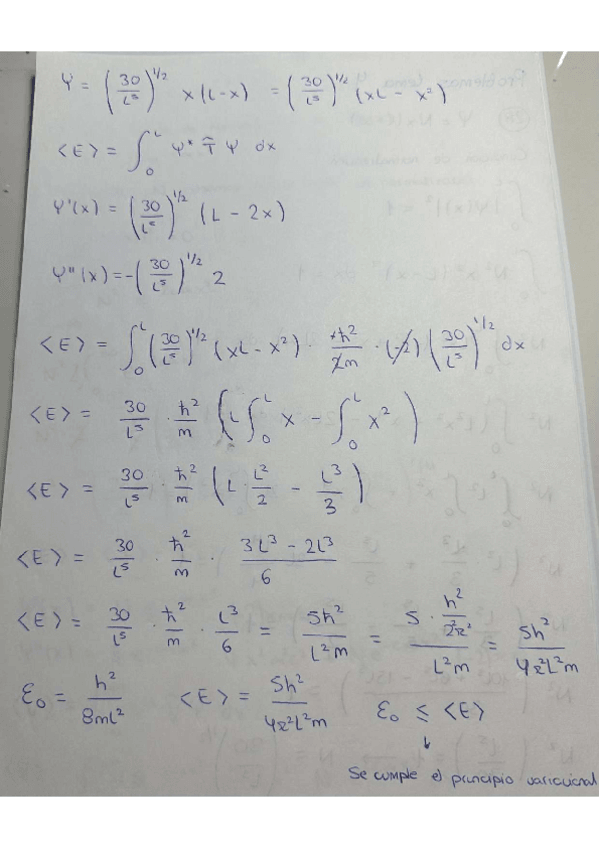 Ψ = (30/L⁵)^1/2 x (L-x) = (30/L⁵)^1/2 (xL - x²)
<E> = ∫₀ᴸ Ψ* T̂ Ψ dx
Ψ'(x) = (30/L⁵)^1/2 (L - 2x)
Ψ''(x) = -(30/L⁵)^1/2 2
<E> = ∫₀ᴸ (30/L⁵)^1/2 (xL - x²) · +ħ²/2m · (-2) (30/L⁵)^1/2 dx
<E> = 30/L⁵ · ħ²/m (L ∫₀ᴸ x - ∫₀ᴸ x²)
<E> = 30/L⁵ · ħ²/m (L · L²/2 - L³/3)
<E> = 30/L⁵ · ħ²/m · (3L³ - 2L³)/6
<E> = 30/L⁵ · ħ²/m · L³/6 = 5ħ²/L²m = (5 · h²/2²π²)/L²m = 5h²/4π²L²m
ε₀ = h²/8mL² <E> = 5h²/4π²L²m ε₀ ≤ <E>
↓
Se cumple el principio variacional